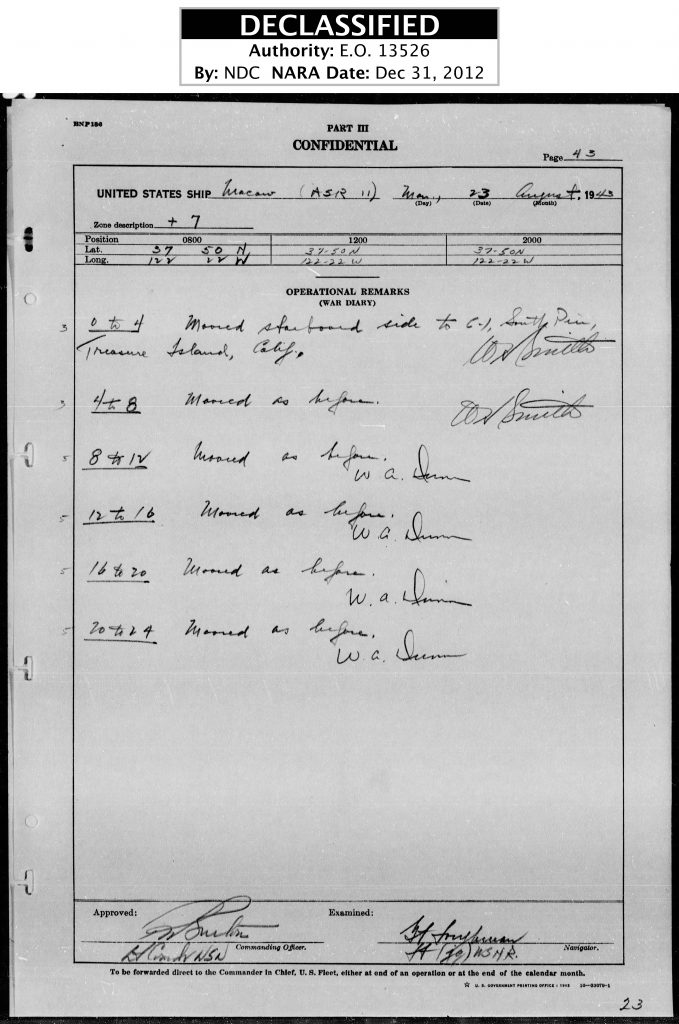 DECLASSIFIED
Authority: E.O. 13526
By: NDC NARA Date: Dec 31, 2012
HNP186
PART III
CONFIDENTIAL
Page 43
UNITED STATES SHIP Macaw (ASR 11) Mon., 23 August, 1943
(Day) (Date) (Month)
Zone description + 7
Position 0800 1200 2000
Lat. 37 50 N 37-50N 37-50N
Long. 122 22 W 122-22 W 122-22 W
OPERATIONAL REMARKS
(WAR DIARY)
3 0 to 4 Moored starboard side to C-1, South Pier,
Treasure Island, Calif. Smith
3 4 to 8 Moored as before. Smith
5 8 to 12 Moored as before.
W A. Dunn
5 12 to 16 Moored as before.
W A. Dunn
5 16 to 20 Moored as before.
W. A. Dunn
5 20 to 24 Moored as before.
W. A. Dunn
Approved: Examined:
Lt Comdr USN Commanding Officer. Lt (jg) USNR. Navigator.
To be forwarded direct to the Commander in Chief, U.S. Fleet, either at end of an operation or at the end of the calendar month.
☆ U. S. GOVERNMENT PRINTING OFFICE : 1943
23